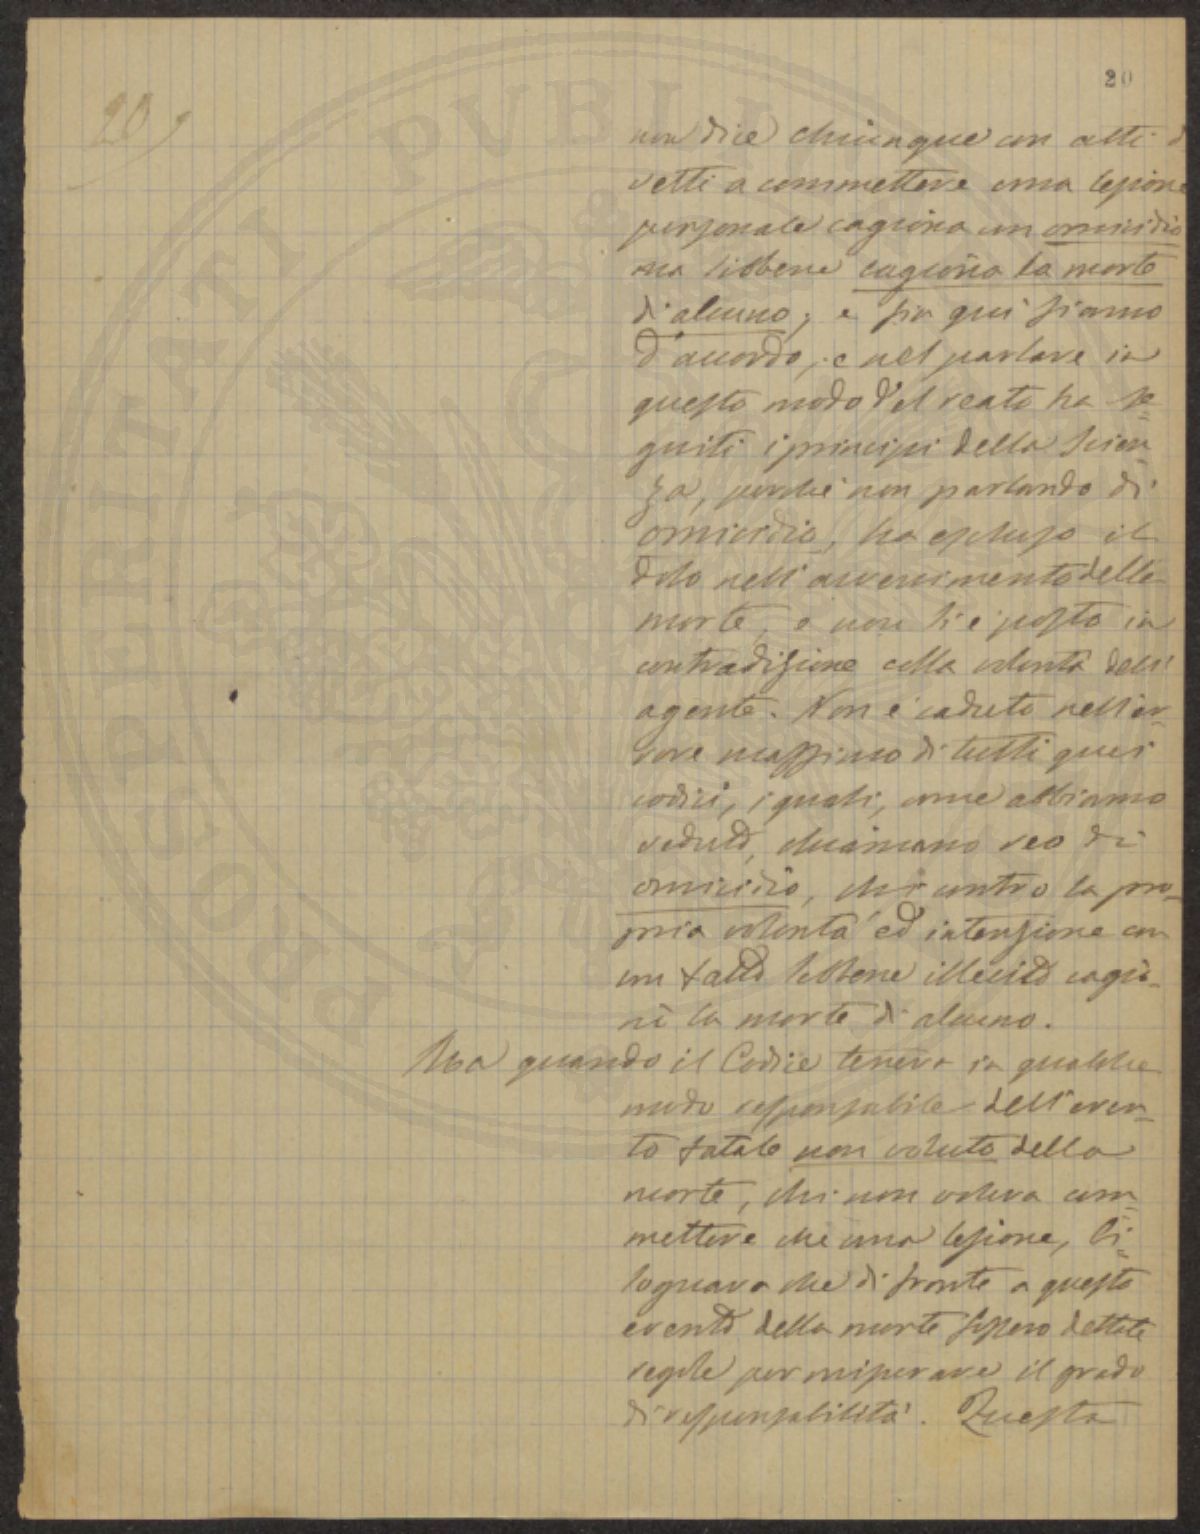 20
20)
non dice chiunque con atti d
retti a commettere una lesione
personale cagiona un omicidio
ma sibbene cagiona la morte
di alcuno; e fin qui siamo
d'accordo, e nel parlare in
questo modo del reato ha se=
guiti i principi della scien=
za, perché non parlando di
omicidio, ha escluso il
dolo nell'avvenimento della
morte, e non si è posto in
contradizione colla volontà dell'
agente. Non è caduto nell'er=
rore massimo di tutti quei
codici, i quali, come abbiamo
veduto, chiamano reo di
omicidio, chi contro la pro=
pria volontà ed intenzione con
un fatto sibbene illecito cagio=
ni la morte di alcuno.
Ma quando il Codice teneva in qualche
modo responsabile dell'even=
to fatale non voluto della
morte, chi non voleva com=
mettere che una lesione, bi=
sognava che di fronte a questo
evento della morte fossero dettate
regole per misurare il grado
di responsabilità. Questa
PROSPERITATI PUBLIC